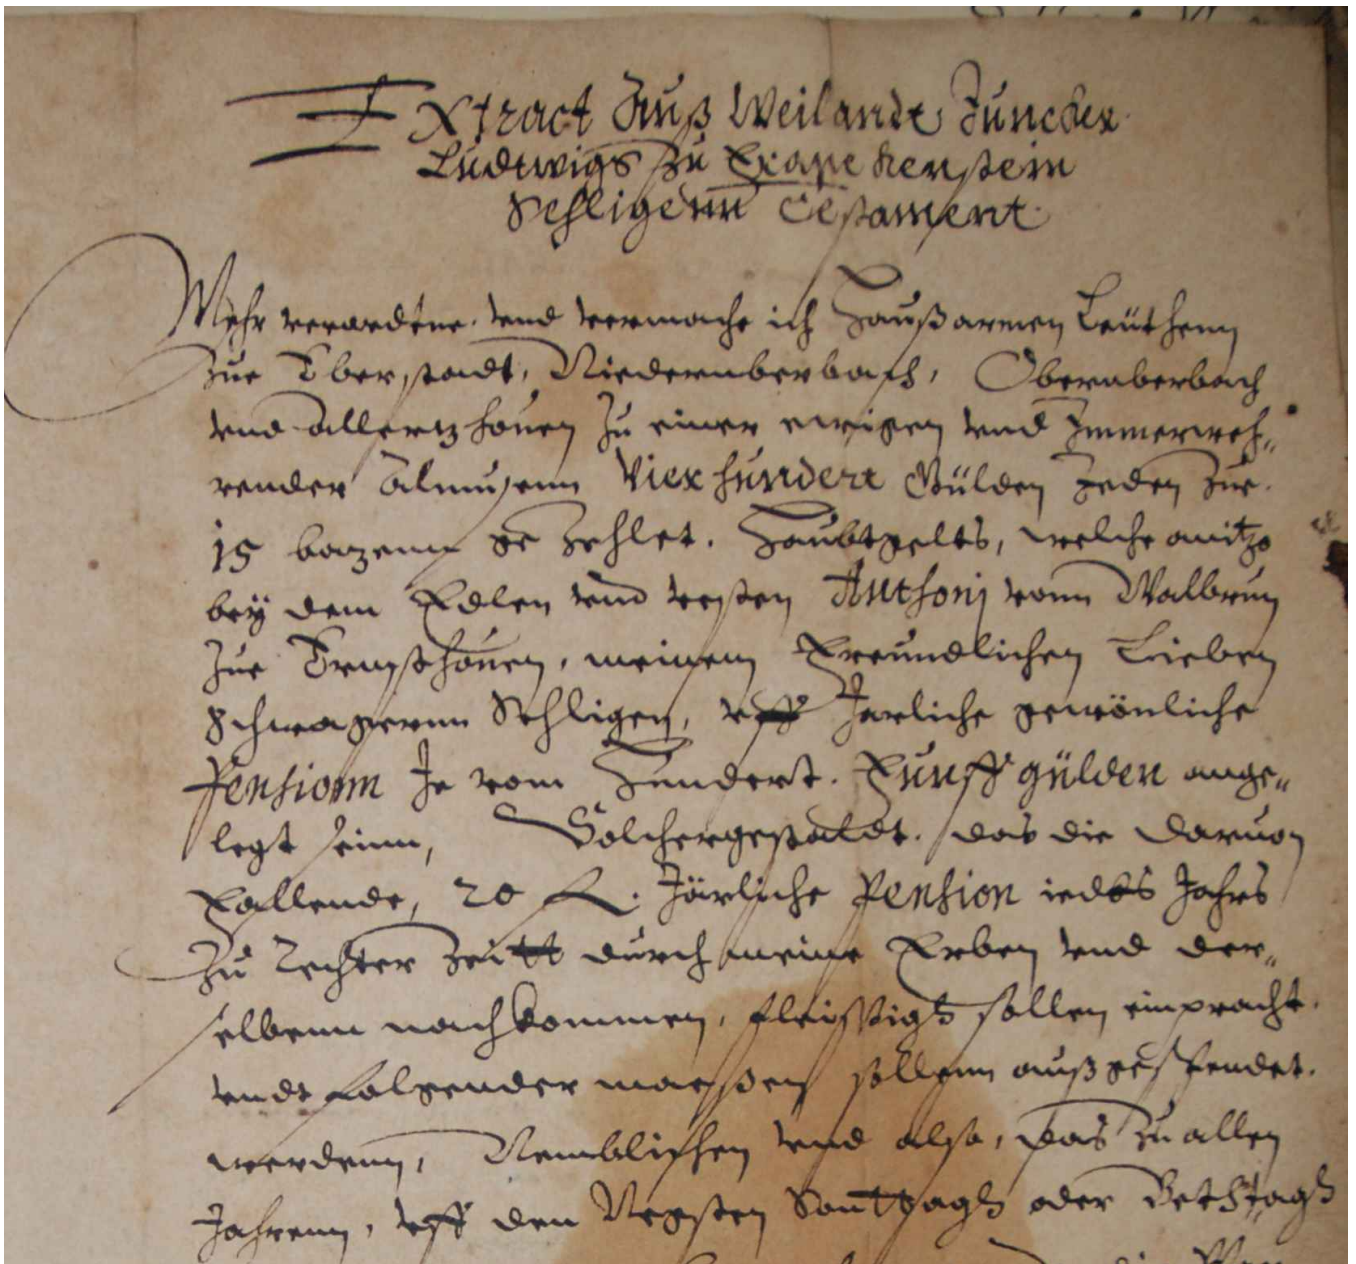 Extract Auß Weilandt Juncker
Ludtwigs zu Franckenstein
Sehligenn Testament
Mehr verordtne vnd vermache ich Haußarmen Leüthenn
zue Eberstadt, Niedernberbach, Oberaberbach
vnd Allertzhouen zu einer ewigen vnd Immerweh„
render Almusenn Vier hundert Gülden jeden zue
15 batzenn gezehlet. Haubtgelts, welche anitzo
bey dem Edlen vnd vesten Anthonj vonn Walbrun
zue Ernsthouen, meinem Freundlichen Lieben
Schwagernn Sehligen, vff Jerliche gewönliche
Pensionn Je vom Hundert. Funff gülden ange„
legt seinn, Solchergestaldt. das die daruon
Fallende, 20 fl. Järliche Pension iedes Jahrs
Zu Rechter Zeitt durch meine Erben vnd der„
selbenn nachkommen, fleissigh sollen einpracht.
vndt folgender maeßen sollenn außgespendet.
werdenn, Nemblichen vnd also, das Zu allen
Jahrenn, vff den Negsten Sontagh oder Bethtagh